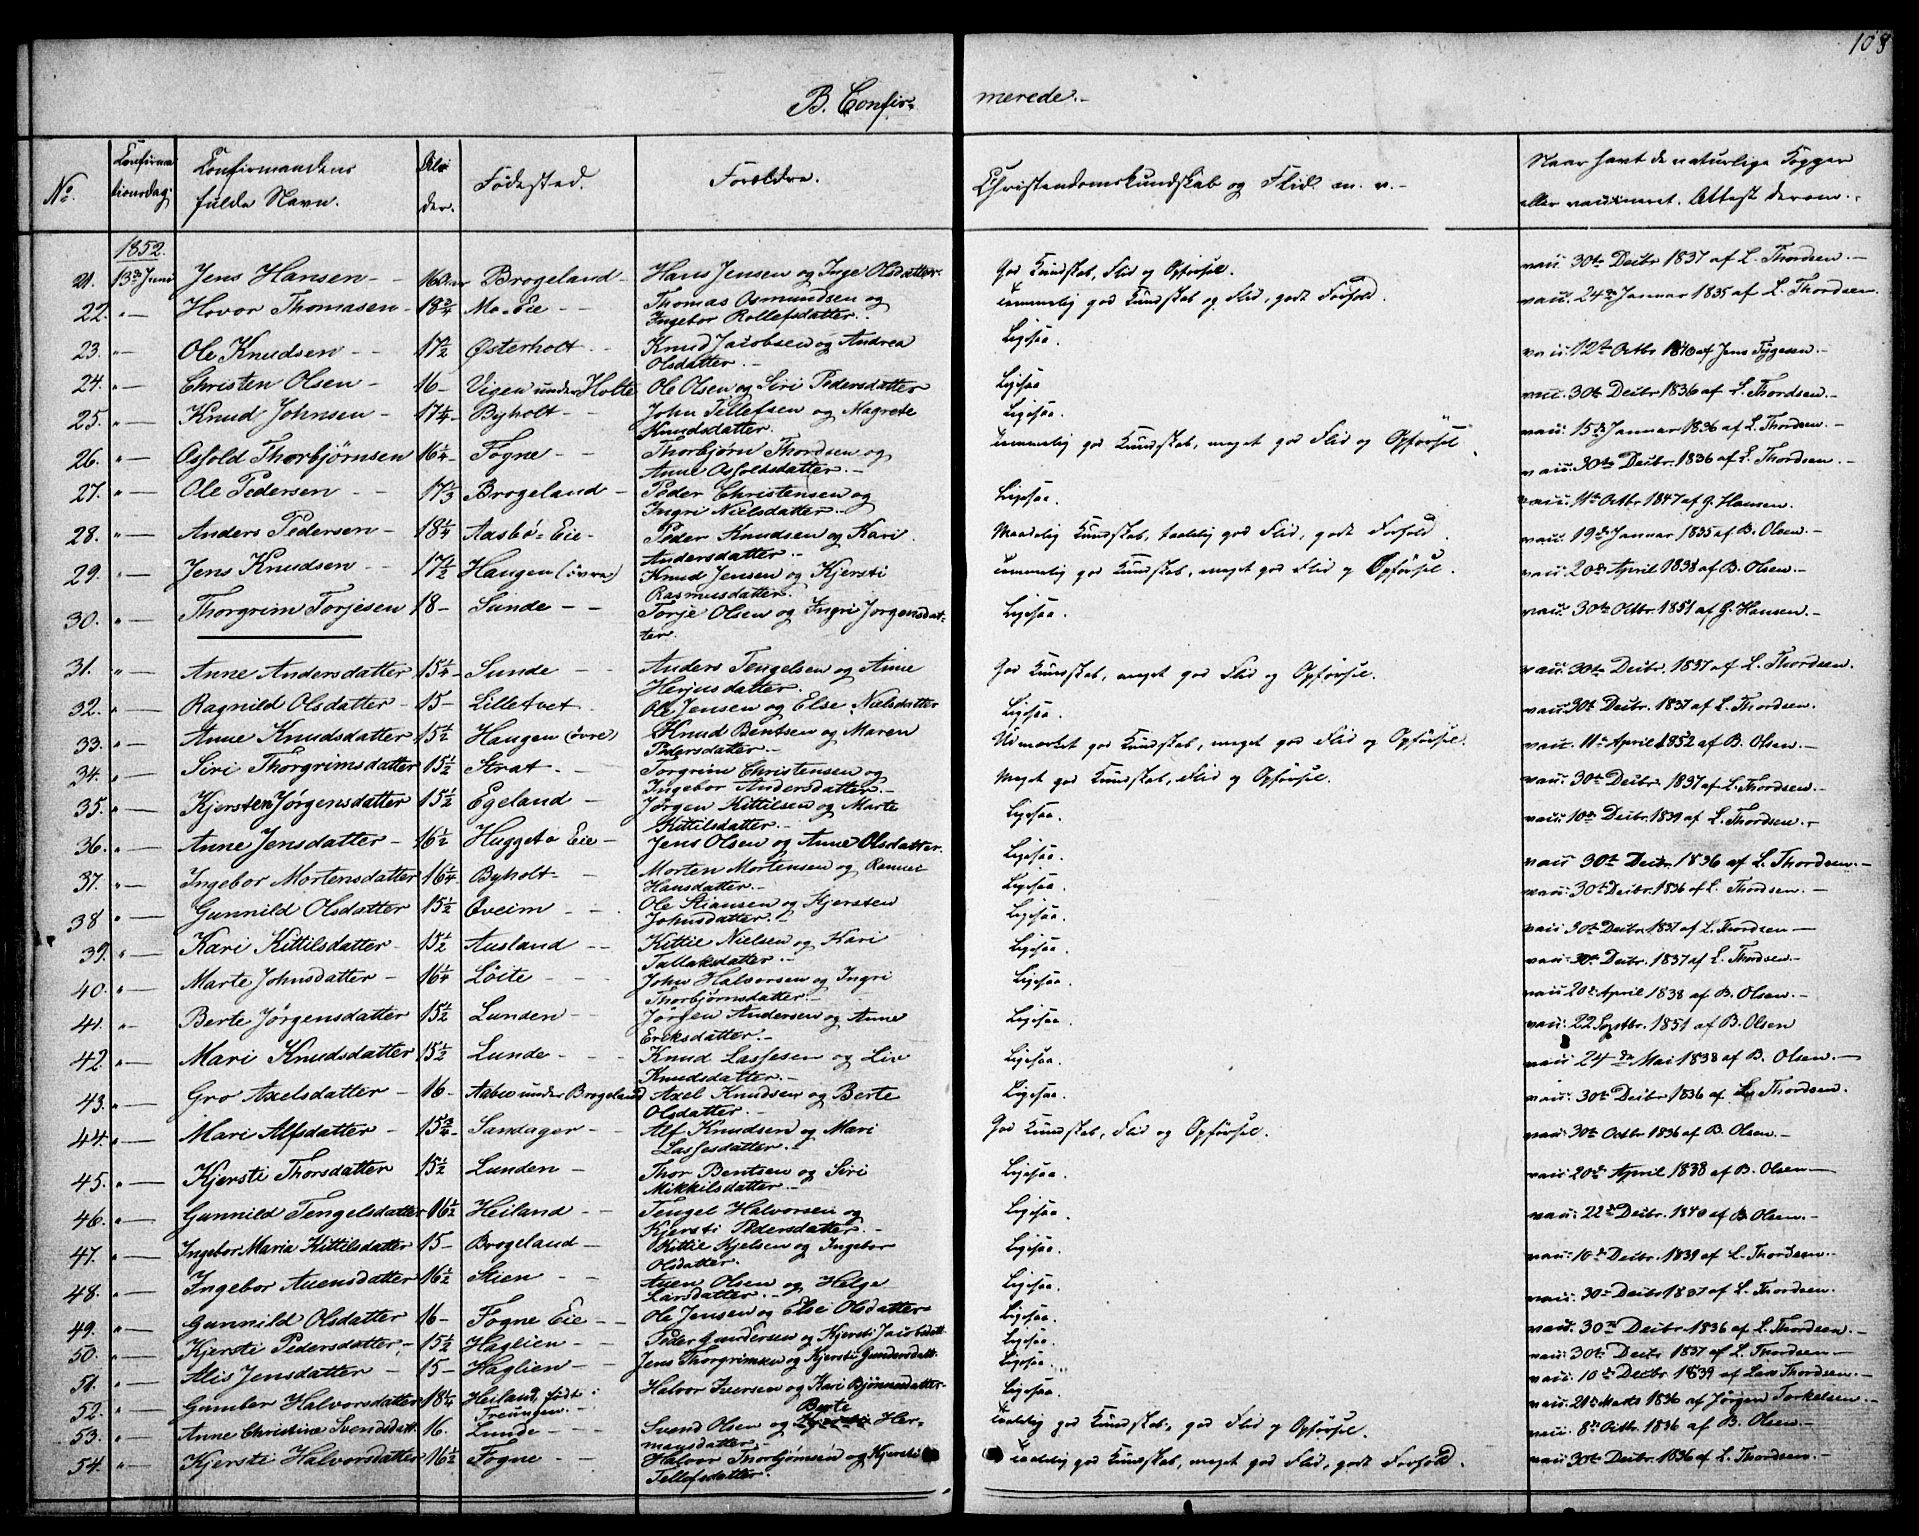 108
B. Confir- merede.-
No. Confirma tionsdag: Confirmandens fulde Navn. Alder. Fødested. Forældre. Christendomskundskab og Flid m. v.- Naar havt de naturlige Kopper eller vaccineret. Attest derom.
1852.
21. 13de Juni Jens Hansen- 16 Aar Brogeland- Hans Jensen og Inge Olsdatter. God Kundskab, Flid og Opførsel. vacc. 30te Decbr 1837 af L. Thordsen.-
22. "- Hovor Thomasen- 18 3/4 Mo-Eie - Thomas Osmundsen og Ingebor Rollefsdatter. temmelig god Kundskab og Flid, godt Forhold. vacc. 24de Januar 1835 af L. Thordsen.
23. "- Ole Knudsen - 17 1/2 Østerholt - Knud Jacobsen og Andrea Olsdatter.- Ligesaa. vacc. 12te Octbr 1840 af Jens Tygesen.-
24. "- Christen Olsen- 16- Vigen under Holte Ole Olsen og Siri Pedersdatter Ligesaa vacc. 30te Decbr 1836 af L. Thordsen.-
25. "- Knud Johnsen- 17 1/4- Byholt- John Tellefsen og Magrete Knudsdatter. Ligesaa. vacc. 15de Januar 1836 af L. Thordsen.-
26. "- Osfold Thorbjørnsen 16 1/4- Fogne - Thorbjørn Thordsen og Anne Osfoldsdatter.- temmelig god Kundskab, meget god Flid og Opførsel. vacc. 30te Decbr. 1836 af L. Thordsen.-
27. "- Ole Pedersen - 17 1/3 Brogeland- Peder Christensen og Ingri Nielsdatter.- Ligesaa. vacc. 11te Octbr 1847 af G. Hansen.
28. "- Anders Pedersen- 18 1/4 Aasbø-Eie- Peder Knudsen og Kari Andersdatter.- Maadelig Kundskab, taalelig god Flid, godt Forhold. vacc. 19de Januar 1835 af B. Olsen
29. "- Jens Knudsen - 17 1/2 Haugen (övre) Knud Jensen og Kjersti Rasmusdatter. temmelig god Kundskab, meget god Flid og Opførsel. vacc. 20de April 1838 af B. Olsen.-
30. "- Thorgrim Torjesen 18- Sunde - - Torje Olsen og Ingri Jørgensdatter. Ligesaa. vacc. 30te Octbr. 1851 af G. Hansen.-
31. "- Anne Andersdatter 15 1/4- Sunde - - Anders Tengelsen og Anne Herjusdatter. God Kundskab, meget god Flid og Opførsel. vacc. 30te Decbr. 1837 af L. Thordsen.
32. "- Ragnild Olsdatter- 15- Lilletvet - Ole Jensen og Else Nielsdatter Ligesaa. vacc. 30te Decbr. 1837 af L. Thordsen.
33. "- Anne Knudsdatter 15 1/2 Haugen (övre) Knud Bentsen og Maren Pedersdatter.- Udmærket god Kundskab, meget god Flid og Opførsel. vacc. 11te April 1852 af B. Olsen.-
34. "- Siri Thorgrimsdatter 15 1/2 Strat - Torgrim Christensen og Ingebor Andersdatter.- Meget god Kundskab, Flid og Opførsel. vacc. 30te Decbr. 1837 af L. Thordsen.-
35. "- Kjersten Jørgensdatter 15 1/2 Egeland- Jørgen Kittilsen og Marte Kittilsdatter.- Ligesaa. vacc. 10de Decbr. 1839 af L. Thordsen.-
36. "- Anne Jensdatter- 16 1/2 Huggeto Eie- Jens Olsen og Anne Olsdatter. Ligesaa. vacc. 30te Decbr. 1836 af L. Thordsen.-
37. "- Ingebor Mortensdatter 16 1/4- Byholt- Morten Mortensen og Rannei Hansdatter.- Ligesaa. vacc. 30te Decbr. 1836 af L. Thordsen.-
38 "- Gunnild Olsdatter 15 1/2 Qveim - Ole Stiansen og Kjersten Johnsdatter.- Ligesaa. vacc. 30te Decbr. 1837 af L. Thordsen-
39. "- Kari Kittilsdatter- 15 1/2 Ausland - Kittil Nielsen og Kari Tallaksdatter.- Ligesaa. vacc. 30te Decbr. 1837 af L. Thordsen.-
40. "- Marte Johnsdatter- 16 1/4 Löite - John Halvorsen og Ingri Thorbjørnsdatter.- Ligesaa. vacc. 20de April 1838 af B. Olsen.-
41. "- Berte Jørgensdatter 15 1/2 Lunden- Jørgen Andersen og Anne Eriksdatter.- Ligesaa. vacc. 22 Septbr. 1851 af B. Olsen
42. "- Mari Knudsdatter 15 1/2 Lunde - Knud Lassesen og Liv Knudsdatter.- Ligesaa. vacc. 24de Mai 1838 af B. Olsen.-
43. "- Gro Axelsdatter - 16- Aabeo under Brogeland Axel Knudsen og Berte Olsdatter.- Ligesaa. vacc. 30te Decbr 1836 af L. Thordsen.
44. "- Mari Alfsdatter - 15 3/4- Sandager- Alf Knudsen og Mari Lassesdatter.- God Kundskab, Flid og Opførsel. vacc. 30te Octbr 1836 af B. Olsen.-
45. "- Kjersti Thorsdatter 15 1/2 Lunden- Thor Bentsen og Siri Mikkilsdatter.- Ligesaa. vacc. 20de April 1838 af B. Olsen-
46. "- Gunnild Tengelsdatter 16 1/2 Heiland - Tengel Halvorsen og Kjersti Pedersdatter.- Ligesaa. vacc. 22de Decbr. 1840 af B. Olsen.-
47. "- Ingebor Maria Kittilsdatter 15- Brogeland- Kittil Kjelsen og Ingebor Olsdatter. Ligesaa. vacc. 10de Decbr. 1839 af L. Thordsen.-
48. "- Ingebor Auensdatter 16 1/2 Stien - - Auen Olsen og Helge Larsdatter.- Ligesaa. vacc. 30te Decbr 1837 af L. Thordsen.
49. "- Gunnild Olsdatter 16- Fogne Eie - Ole Jensen og Else Olsdatter Ligesaa. vacc. 30te Decbr. 1836 af L. Thordsen.-
50. "- Kjersti Pedersdatter- 15 1/2 Haglien- Peder Gundersen og Kjersti Jacobsdatt. Ligesaa. vacc. 30te Decbr 1837 af L. Thordsen-
51. "- Alis Jensdatter - 15- Haglien- Jens Thorgrimsen og Kjersti Gundersdatt. Ligesaa. vacc. 10de Decbr 1839 af Lars Thordsen.-
52. "- Gunbor Halvorsdatter 18 1/4 Heiland, født i Treungen.- Halvor Iversen og Kari Bjønnusdatter- Ligesaa. vacc. 21de Marts 1836 af Jørgen Torkelsen.-
53. "- Anne Christine Svendsdatt. 16. Lunde - Svend Olsen og Kjersti Berte Hermansdatter taalelig god Kundskab, god Flid og Opførsel. vacc. 8de Octbr 1836 af B. Olsen.-
54. "- Kjersti Halvorsdatter 16 1/2 Fogne - Halvor Thorbjørnsen og Kjersti Tellefsdatter. taalelig god Kundskab, meget god Flid, godt Forhold. vacc. 30te Decbr. 1836 af L. Thordsen.-